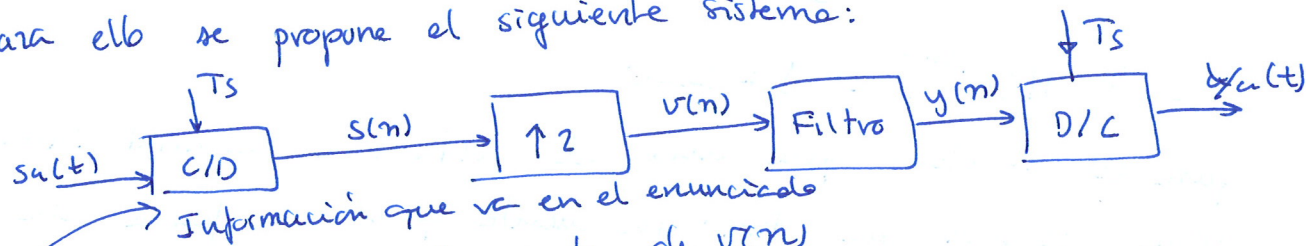 ara ello se propone el siguiente sistema:
Ts
Ts
sa(t) C/D s(n) ↑2 v(n) Filtro y(n) D/C ya(t)
Información que va en el enunciado
de v(n)